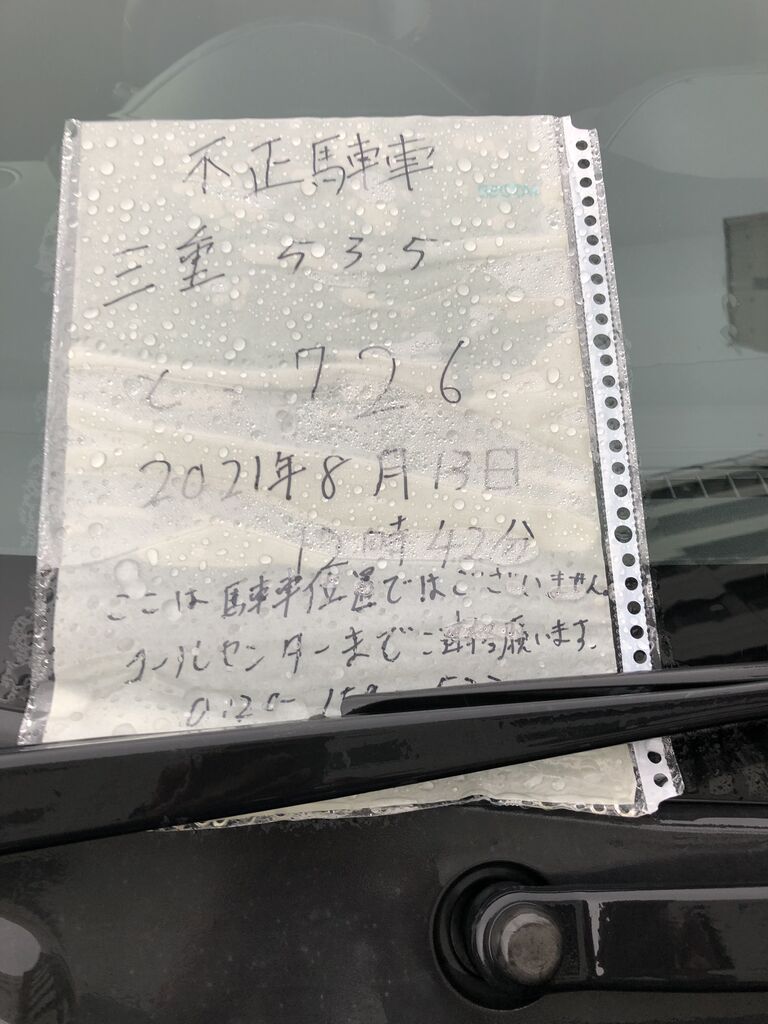 不正駐車
三重 535
と 726
2021年8月13日
12時42分
ここは駐車位置ではございません。
コールセンターまでご連絡願います。
0120-